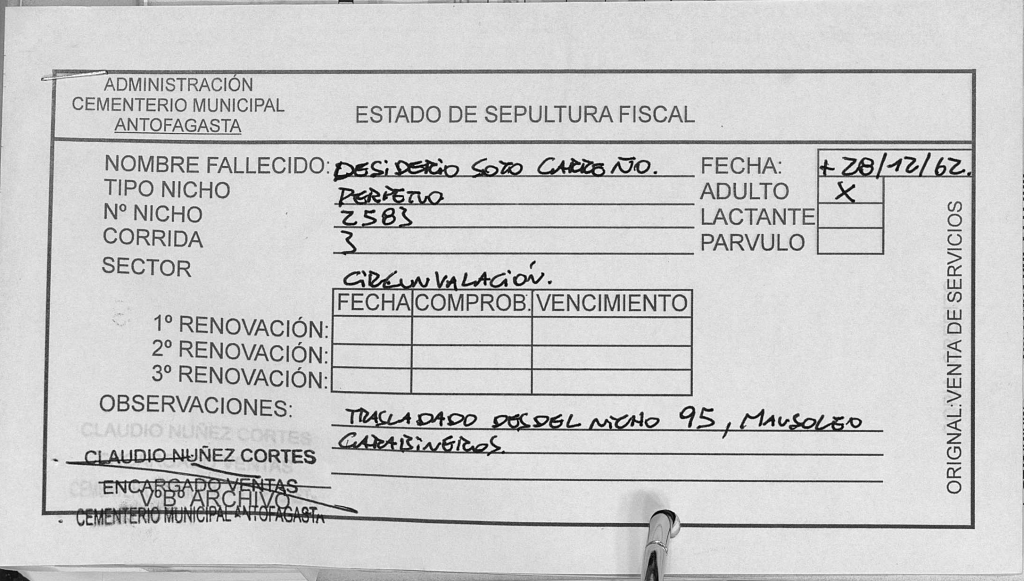 ADMINISTRACIÓN
CEMENTERIO MUNICIPAL
ANTOFAGASTA
ESTADO DE SEPULTURA FISCAL
NOMBRE FALLECIDO: DESIDERIO SOTO CARREÑO. FECHA: + 28/12/62.
TIPO NICHO PERPETUO ADULTO X
Nº NICHO 2583 LACTANTE
CORRIDA 3 PARVULO
SECTOR CIRCUNVALACIÓN.
FECHA COMPROB. VENCIMIENTO
1º RENOVACIÓN:
2º RENOVACIÓN:
3º RENOVACIÓN:
OBSERVACIONES: TRASLADADO DESDEL NICHO 95, MAUSOLEO
CARABINEROS.
CLAUDIO NUÑEZ CORTES
CLAUDIO NUÑEZ CORTES
ENCARGADO VENTAS
VºBº ARCHIVO
CEMENTERIO MUNICIPAL ANTOFAGASTA
ORIGNAL:VENTA DE SERVICIOS